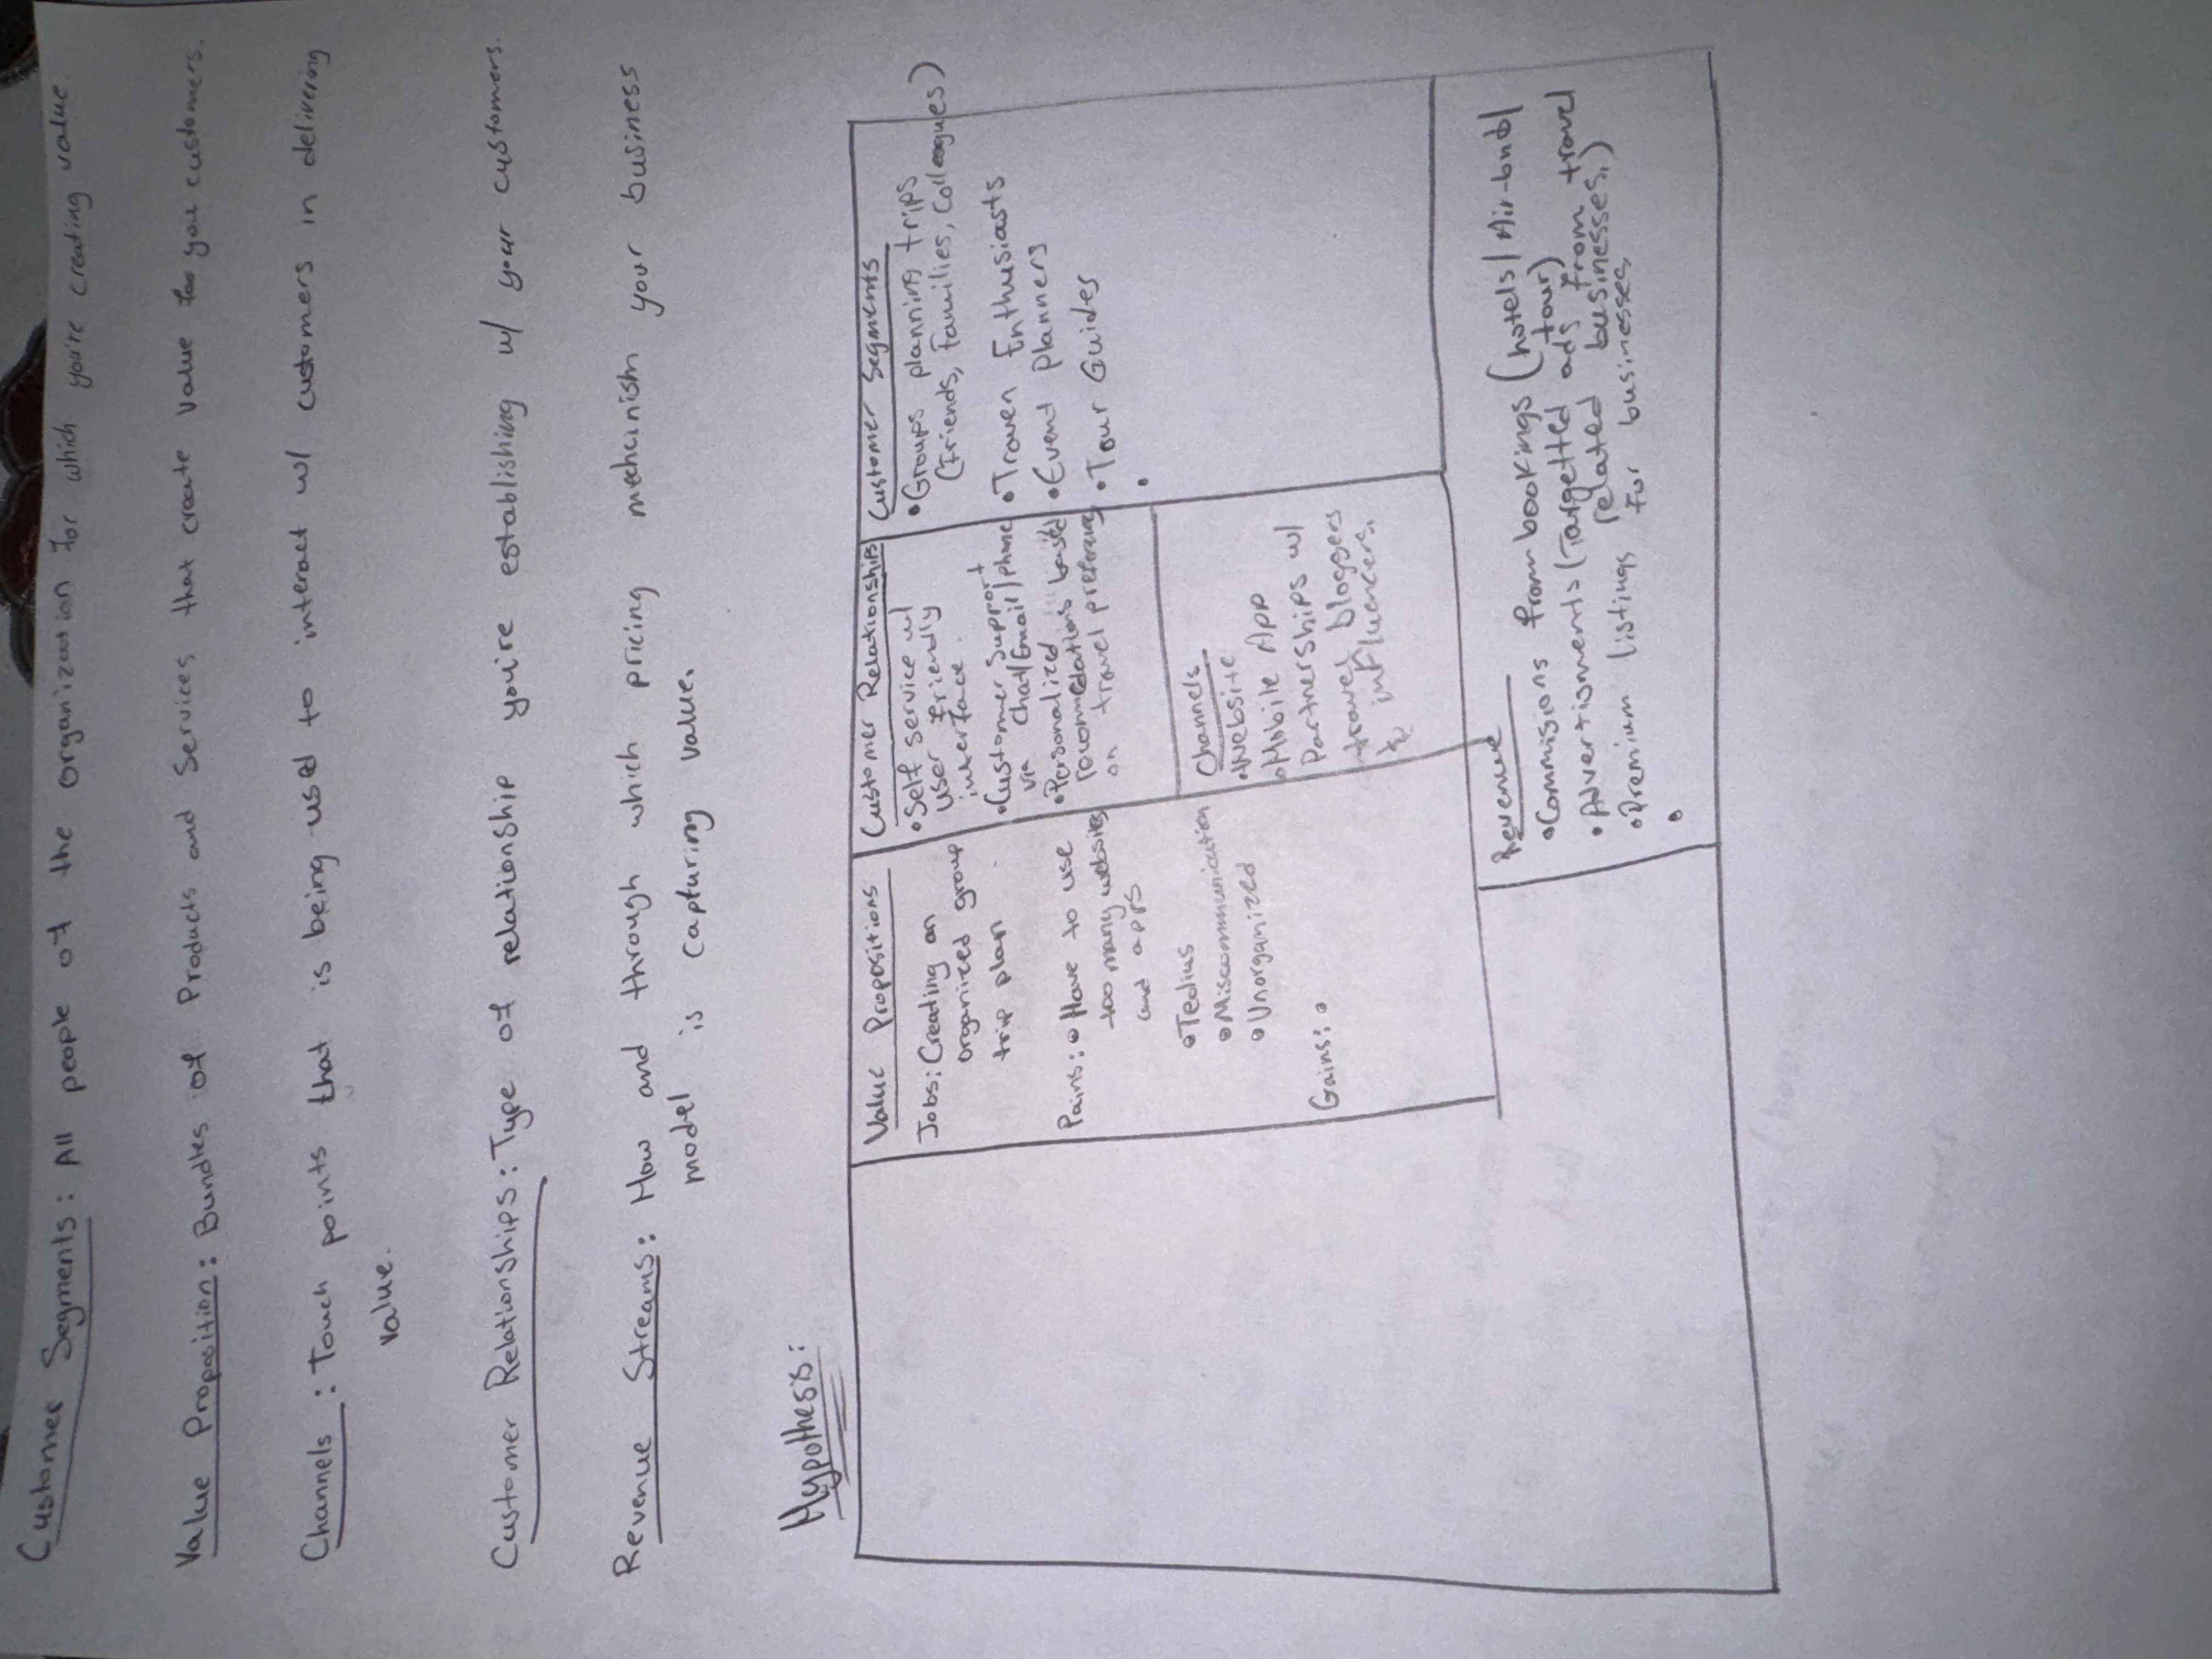 Customer Segments: All people of the organization for which you're creating value
Value Proposition: Bundles of Products and Services that create value for your customers.
Channels: Touch points that is being used to interact w/ customers in delivering
value.
Customer Relationships: Type of relationship you're establishing w/ your customers.
Revenue Streams: How and through which pricing mechanism your business
model is capturing value.
Hypothesis:
Value Propositions
Jobs: Creating an
organized group
trip plan
Pains: • Have to use
too many websites
and apps
• Tedius
• Miscommunication
• Unorganized
Gains: •
Customer Relationships
• Self service w/
user friendly
interface.
• Customer Support
via Chat/Email/phone
• Personalized
recommedations based
on travel preferences
Channels
• Website
• Mobile App
Partnerships w/
travel bloggers
& influencers.
Customer Segments
• Groups planning trips
(Friends, Families, Colleagues)
• Traven Enthusiasts
• Event Planners
• Tour Guides
•
Revenue
• Commisions from bookings (hotels/Air-bnb/
tour)
• Advertisments (Targetted ads from travel
related businesses.)
• Premium listings for businesses
•